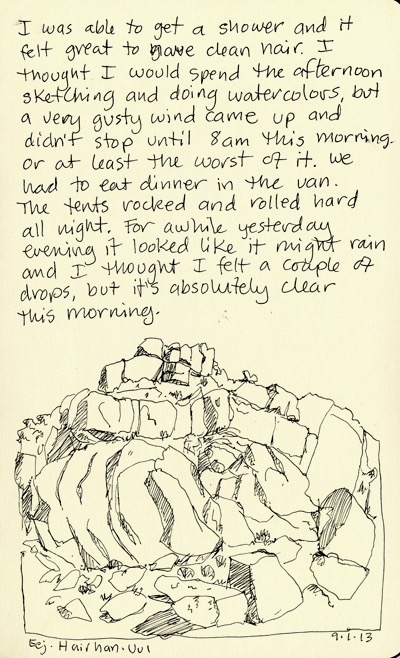 I was able to get a shower and it
felt great to have clean hair. I
thought I would spend the afternoon
sketching and doing watercolors, but
a very gusty wind came up and
didn't stop until 8am this morning.
or at least the worst of it. we
had to eat dinner in the van.
The tents rocked and rolled hard
all night. For awhile yesterday
evening it looked like it might rain
and I thought I felt a couple of
drops, but it's absolutely clear
this morning.
Eej. Hairhan. Uul
9.1.13